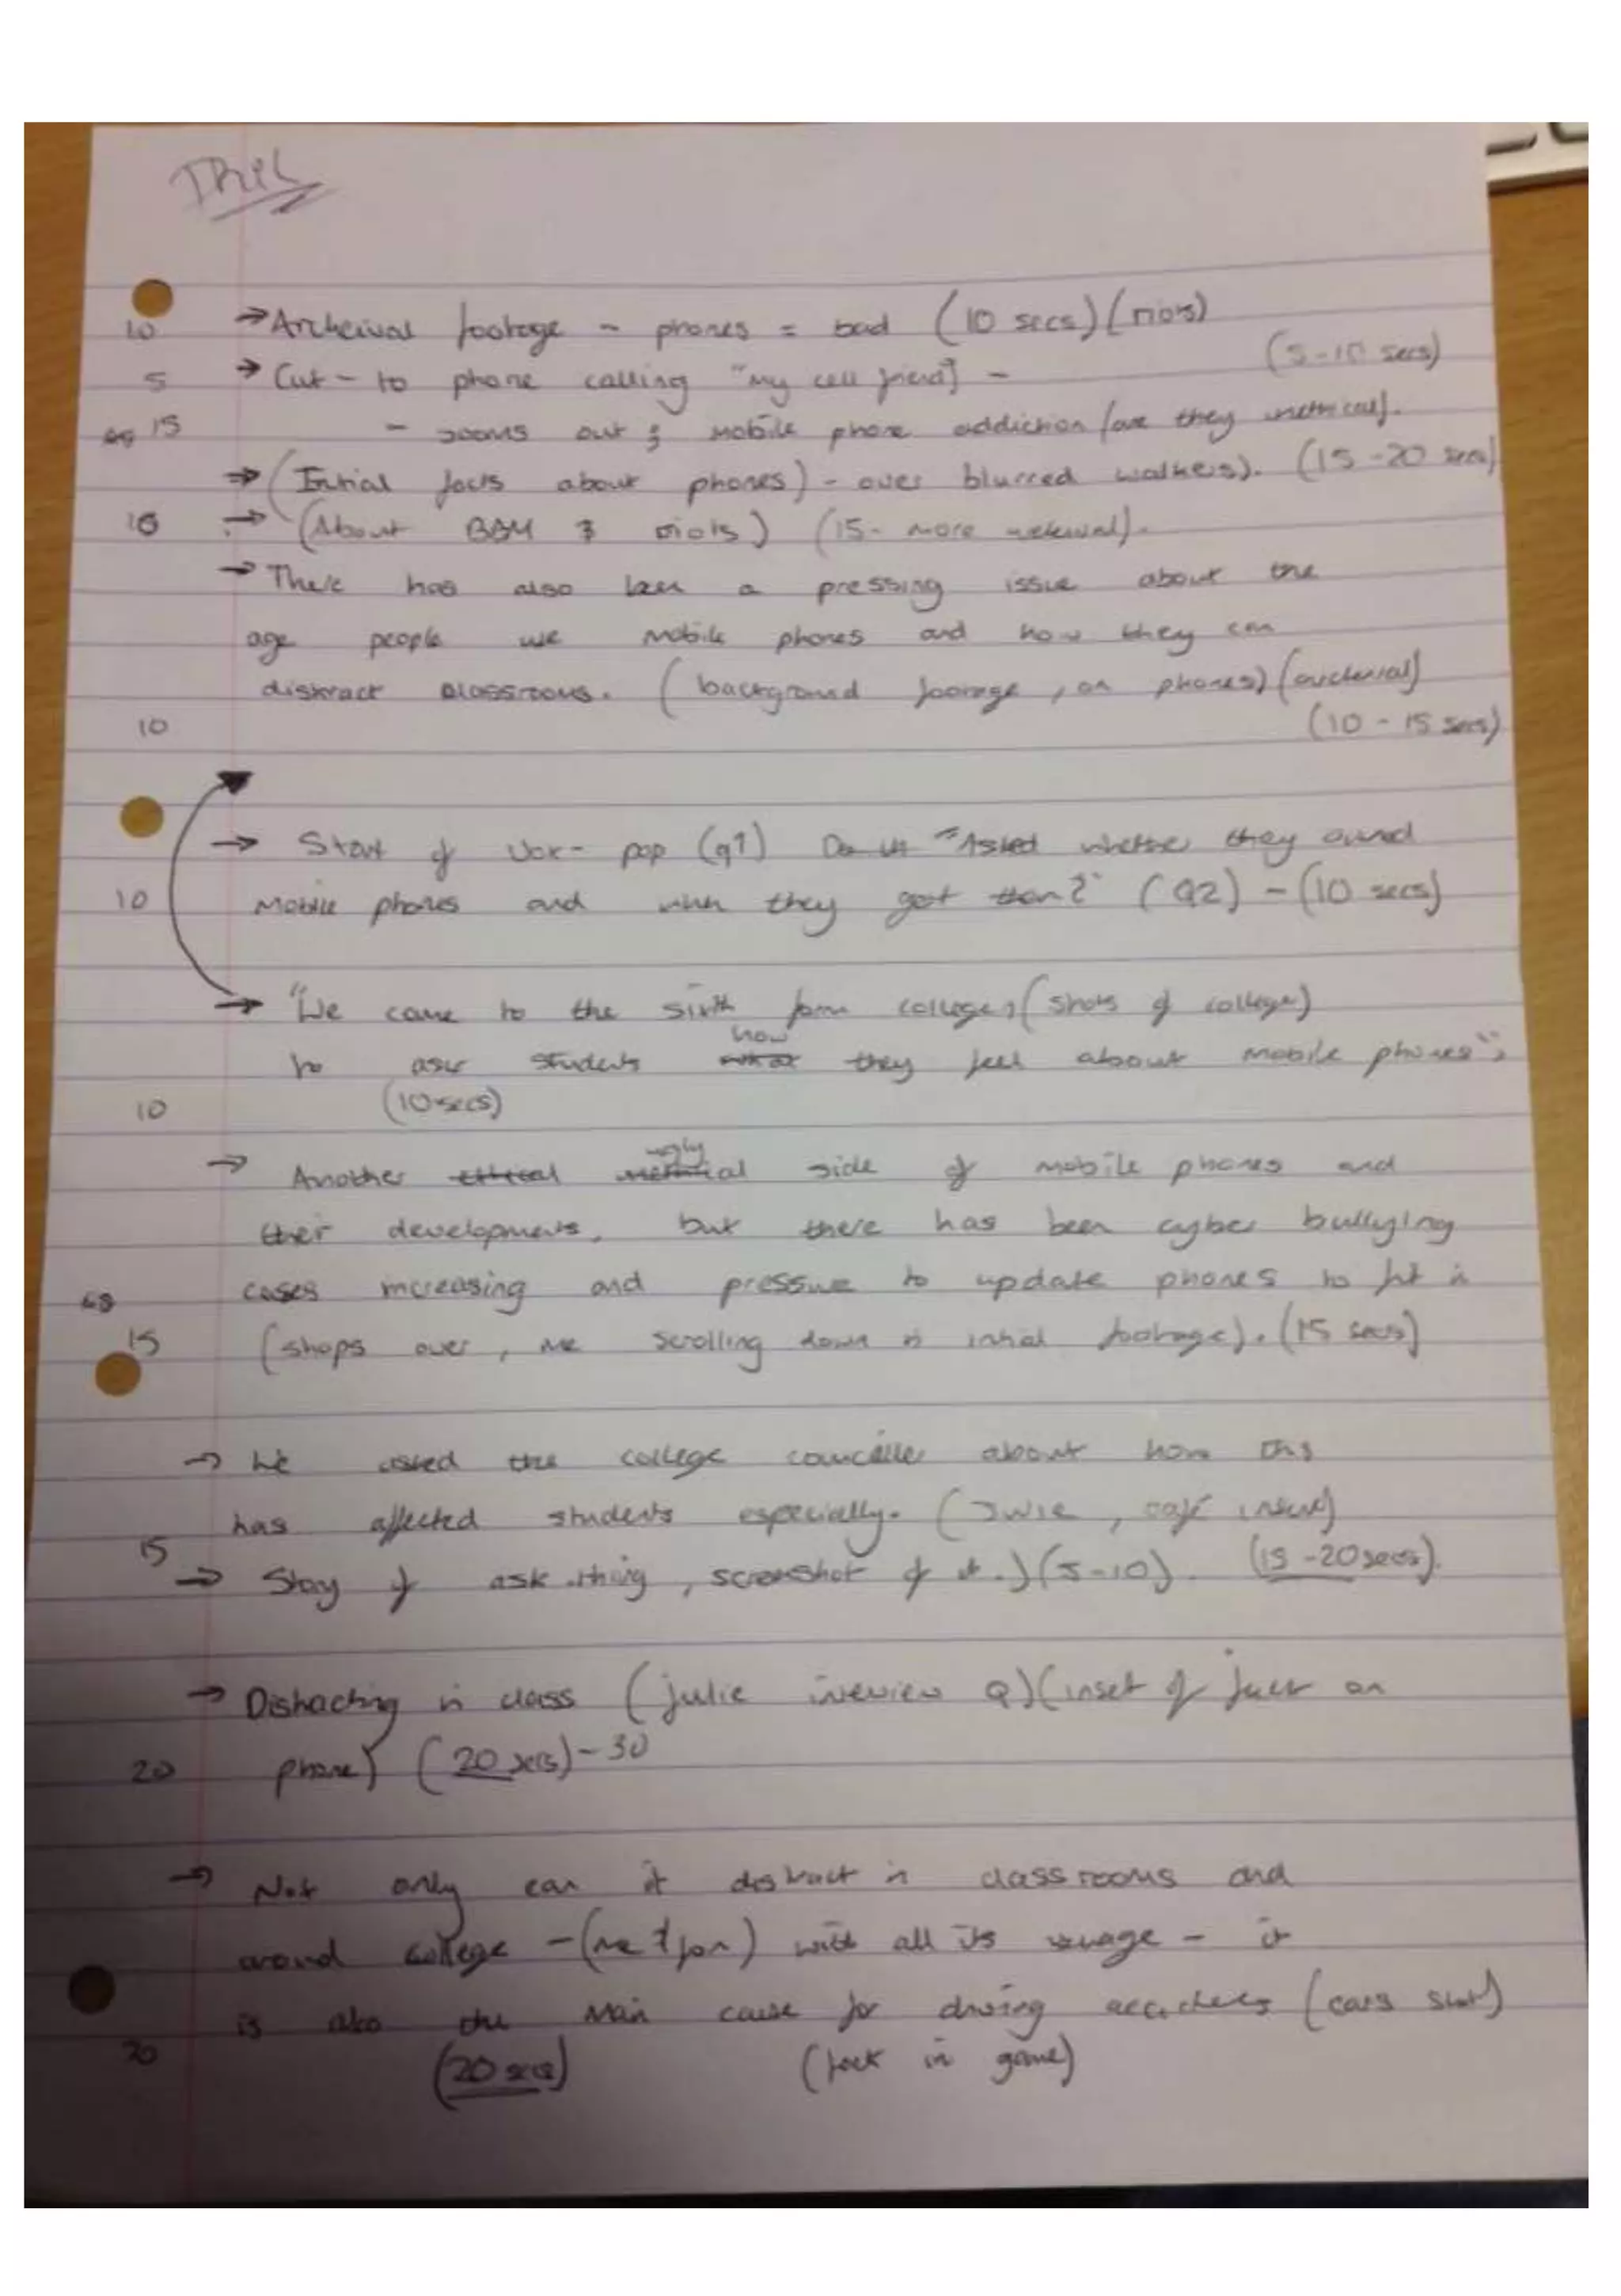 10 → Archeival footage - phones = bad (10 secs) (riots)
5 → Cut - to phone calling "my cell friend] - (5-10 secs)
15 - zooms out & mobile phone addiction (are they
→ (Initial facts about phones) - over blurred walkers). (15-20 secs)
10 → (About BBM & riots) (15 - more
→ There has also been a pressing issue about the
age people use mobile phones and how they can
distract classrooms. (background footage, on phones) (archeival)
10 (10 - 15 secs)
→ Start of Vox-pop (q1) "Asked whether they owned
10 mobile phones and when they got them?" (Q2) - (10 secs)
→ "We came to the sixth form college, (shots of college)
how
to ask students they feel aboout mobile phones",
10 (10 secs)
ugly
→ Another ethical side of mobile phones and
their developments, but there has been cyber bullying
cases increasing and pressure to update phones to fit in
15 (shops over, me scrolling down in initial footage). (15 secs)
→ We asked the college counceller about how this
has affected students especially. (Julie,
15 (15-20 secs).
→ Story of ask.thing, screenshot of it.) (5-10).
→ Distracting in class (julie inteview Q) (inset of on
20 phone) (20 secs) - 30
→ Not only can it distract in classrooms and
around college - (me & jon) with all its useage - it
is also the main cause for driving accidents (cars shot)
20 (20 secs) (look in game)